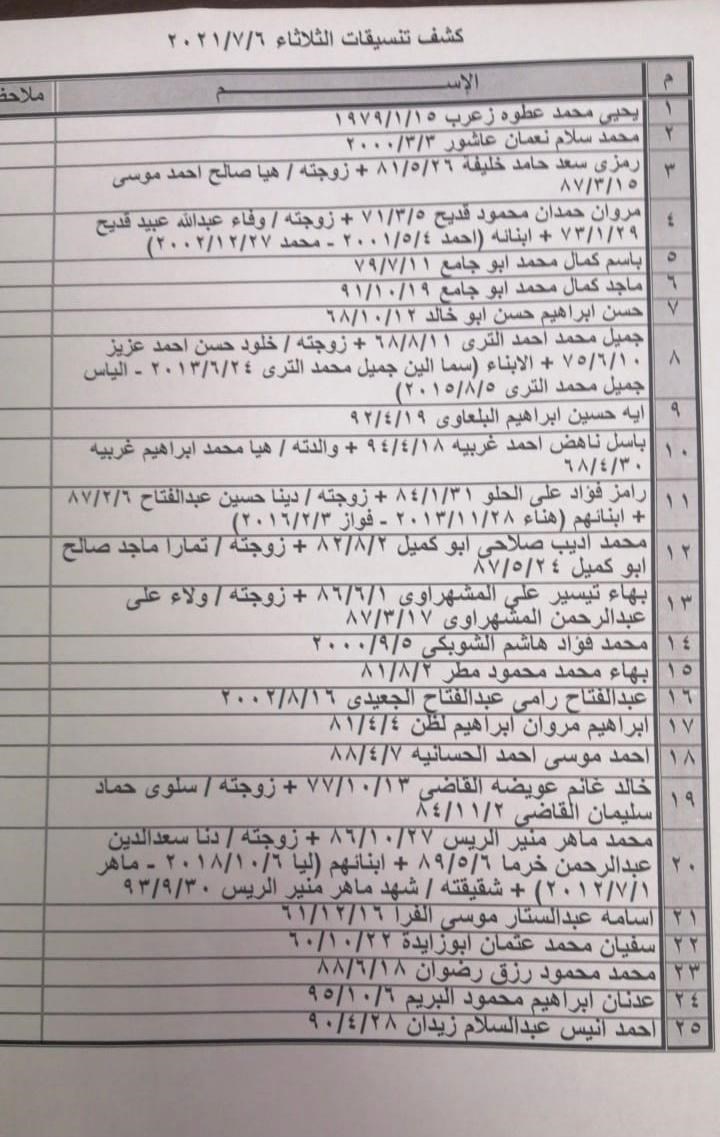 كشف تنسيقات الثلاثاء ٢٠٢١/٧/٦
م الإســــــم ملاحظ
١ يحيي محمد عطوه زعرب ١٩٧٩/١/١٥
٢ محمد سلام نعمان عاشور ٢٠٠٠/٣/٣
٣ رمزى سعد حامد خليفة ٨١/٥/٢٦ + زوجته / هيا صالح احمد موسى
٨٧/٣/١٥
٤ مروان حمدان محمود قديح ٧١/٣/٥ + زوجته / وفاء عبدالله عبيد قديح
٧٣/١/٢٩ + ابنائه (احمد ٢٠٠١/٥/٤ - محمد ٢٠٠٢/١٢/٢٧)
٥ باسم كمال محمد ابو جامع ٧٩/٧/١١
٦ ماجد كمال محمد ابو جامع ٩١/١٠/١٩
٧ حسن ابراهيم حسن ابو خالد ٦٨/١٠/١٢
٨ جميل محمد احمد الترى ٦٨/٨/١١ + زوجته / خلود حسن احمد عزيز
٧٥/٦/١٠ + الابناء (سما الين جميل محمد الترى ٢٠١٣/٦/٢٤ - الياس
جميل محمد الترى ٢٠١٥/٨/٥)
٩ ايه حسين ابراهيم البلعاوى ٩٢/٤/١٩
١٠ باسل ناهض احمد غربيه ٩٤/٤/١٨ + والدته / هيا محمد ابراهيم غربيه
٦٨/٤/٣٠
١١ رامز فؤاد على الحلو ٨٤/١/٣١ + زوجته / دينا حسين عبدالفتاح ٨٧/٢/٦
+ ابنائهم (هناء ٢٠١٣/١١/٢٨ - فواز ٢٠١٦/٢/٣)
١٢ محمد اديب صلاحى ابو كميل ٨٢/٨/٢ + زوجته / تمارا ماجد صالح
ابو كميل ٨٧/٥/٢٤
١٣ بهاء تيسير على المشهراوى ٨٦/٦/١ + زوجته / ولاء على
عبدالرحمن المشهراوى ٨٧/٣/١٧
١٤ محمد فؤاد هاشم الشوبكي ٢٠٠٠/٩/٥
١٥ بهاء محمد محمود مطر ٨١/٨/٢
١٦ عبدالفتاح رامى عبدالفتاح الجعيدى ٢٠٠٢/٨/١٦
١٧ ابراهيم مروان ابراهيم لظن ٨١/٤/٤
١٨ احمد موسى احمد الحسانيه ٨٨/٤/٧
١٩ خالد غانم عويضه القاضى ٧٧/١٠/١٣ + زوجته / سلوى حماد
سليمان القاضى ٨٤/١١/٢
٢٠ محمد ماهر منير الريس ٨٦/١٠/٢٧ + زوجته / دنا سعدالدين
عبدالرحمن خرما ٨٩/٥/٦ + ابنائهم (ليا ٢٠١٨/١٠/٦ - ماهر
٢٠١٢/٧/١) + شقيقته / شهد ماهر منير الريس ٩٣/٩/٣٠
٢١ اسامه عبدالستار موسى الفرا ٦١/١٢/١٦
٢٢ سفيان محمد عثمان ابوزايدة ٦٠/١٠/٢٢
٢٣ محمد محمود رزق رضوان ٨٨/٦/١٨
٢٤ عدنان ابراهيم محمود البريم ٩٥/١٠/٦
٢٥ احمد انيس عبدالسلام زيدان ٩٠/٤/٢٨